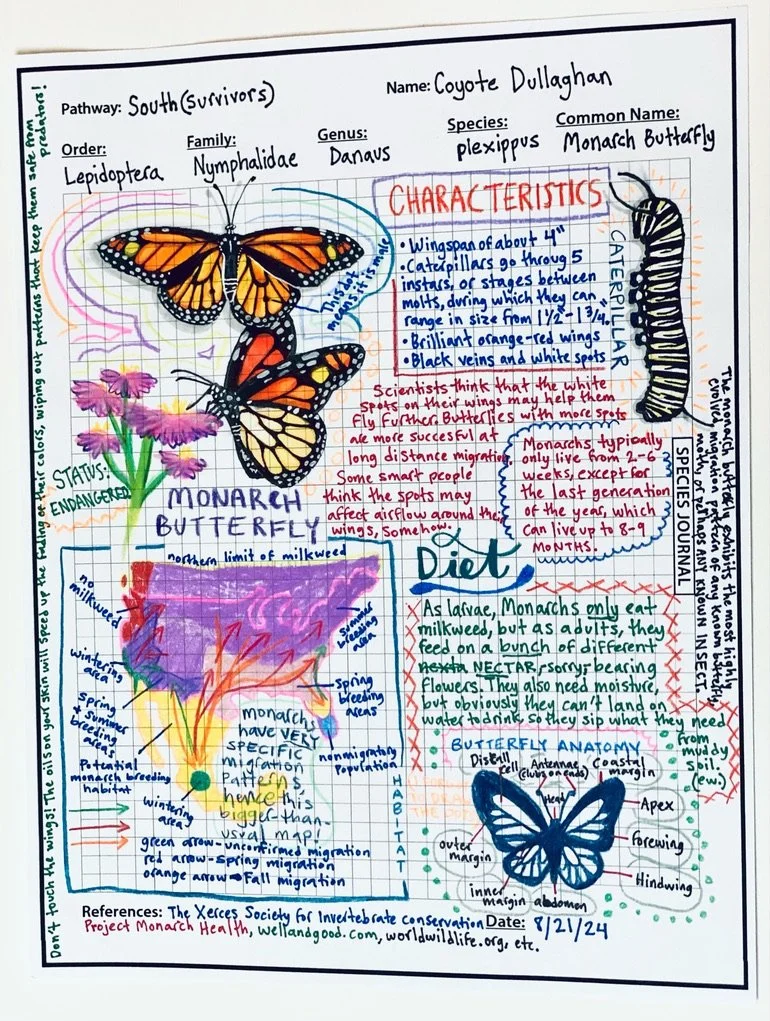 Pathway: South (survivors)
Name: Coyote Dullaghan
Order: Lepidoptera
Family: Nymphalidae
Genus: Danaus
Species: plexippus
Common Name: Monarch Butterfly
Don't touch the wings! The oils on your skin will speed up the fading of their colors, wiping out patterns that keep them safe from
predators!
This dot
means it is male
CHARACTERISTICS
• Wingspan of about 4"
• Caterpillars go throug 5
instars, or stages between
molts, during which they can
range in size from 1 1/2" - 1 3/4"
• Brilliant orange-red wings
• Black veins and white spots
CATERPILLAR
Scientists think that the white
spots on their wings may help them
fly further. Butterflies with more spots
are more succesful at
long distance migration.
Some smart people
think the spots may
affect airflow around the
wings, somehow.
Monarchs typically
only live from 2-6
weeks, except for
the last generation
of the year, which
can live up to 8-9
MONTHS.
SPECIES JOURNAL
The monarch butterfly exhibits the most highly
evolved migration pattern of any known butterfly
moth, or perhaps ANY KNOWN INSECT.
STATUS:
ENDANGERED
MONARCH
BUTTERFLY
northern limit of milkweed
no
milkweed
summer
breeding
area
wintering
area
Spring
breeding
areas
Spring
+ summer
breeding
areas
nonmigratory
Population
Potential
monarch breeding
habitat
wintering
area
monarchs
have VERY
SPECIFIC
migration
Patterns,
hence this
bigger-than-
usual map!
green arrow-unconfirmed migration
red arrow-spring migration
orange arrow → Fall migration
HABITAT
Diet
As larvae, Monarchs only eat
milkweed, but as adults, they
feed on a bunch of different
NECTAR, sorry, bearing
flowers. They also need moisture,
but obviously they can't land on
water to drink, so they sip what they need
from
muddy
soil.
(ew.)
BUTTERFLY ANATOMY
Discal
cell
Antennae
(clubs on ends)
Coastal
margin
Head
Apex
Forewing
Hindwing
outer
margin
inner
margin
abdomen
References: The Xerces Society for Invertebrate conservation
Project Monarch Health, wellandgood.com, worldwildlife.org, etc.
Date: 8/21/24